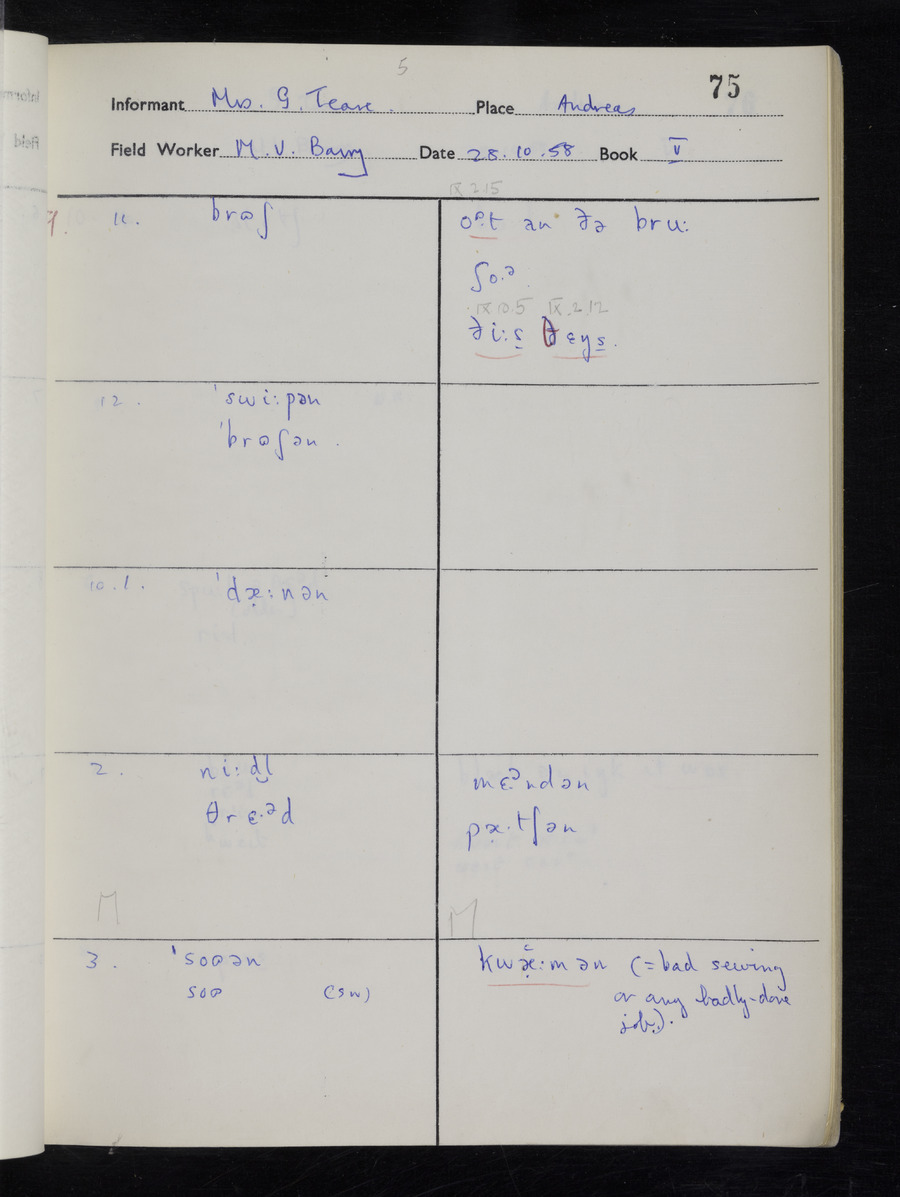 5
75
Informant Mrs. G. Teare. Place Andreas
Field Worker M. V. Barry Date 28.10.58 Book V
IX 2.15
9. 11. brɷʃ
oᵊ·t an ðə bru:
ʃo.ᵊ
IX 10.5 IX.2.12
ði:s̱ ðɛys̱.
12. ˈswi:pən
ˈbrɷʃən.
10.1. ˈdæ̣:nən
2. ni:dl̩
θrɛ.ᵊd
mɛ.ᵊndən
pæ̣.tʃən
M
M
3. ˈsoɷən
soɷ (sw)
kwæ̣̆:mən (= bad sewing
or any badly-done
job).